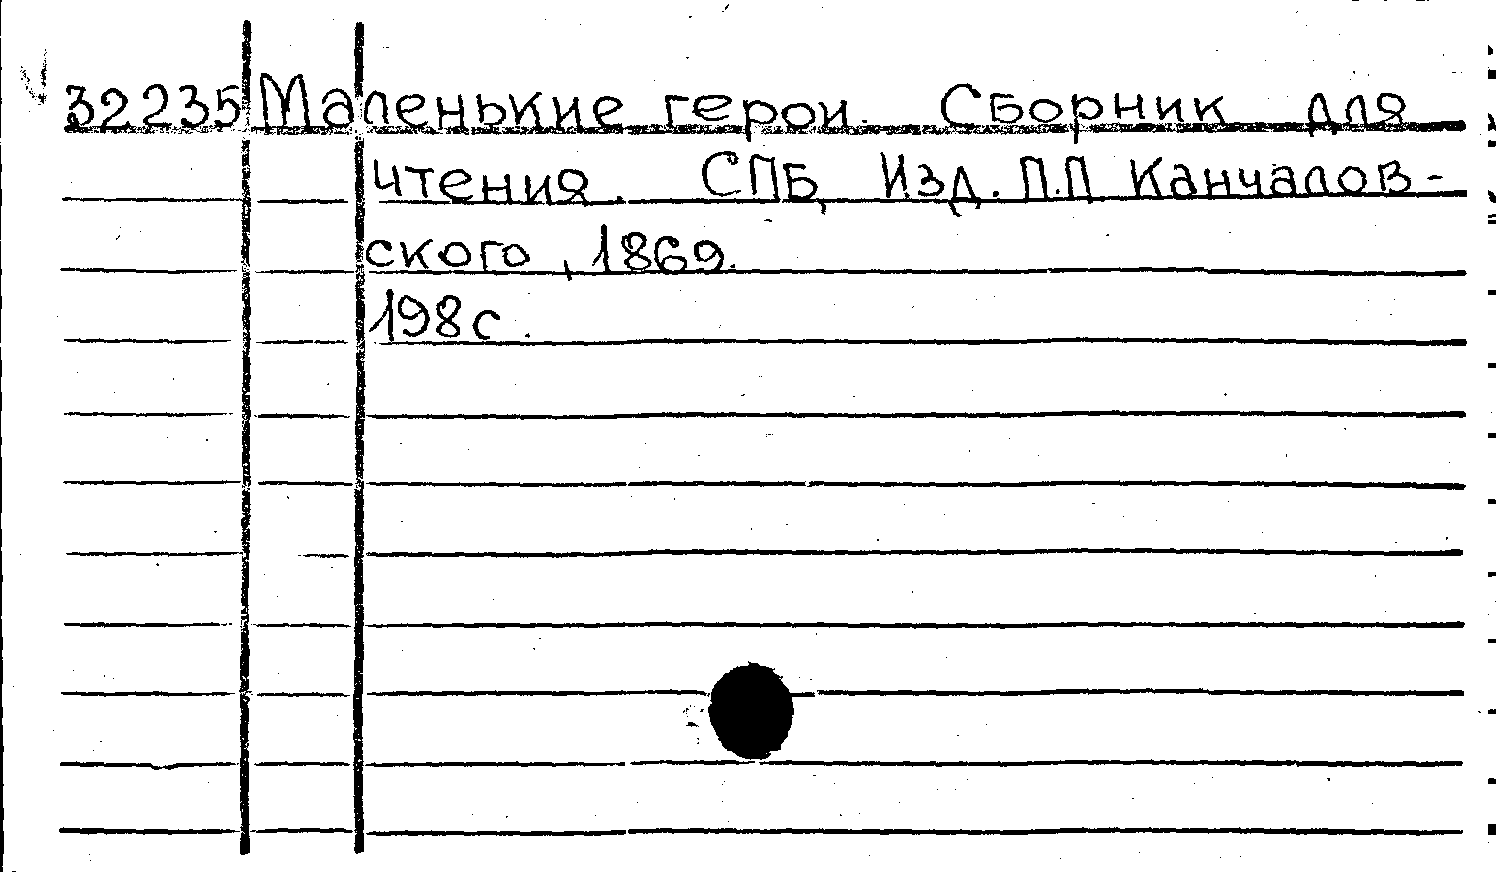 32235 Маленькие герои. Сборник для
чтения. СПБ, Изд. П.П Канчалов-
ского, 1869.
198 с.